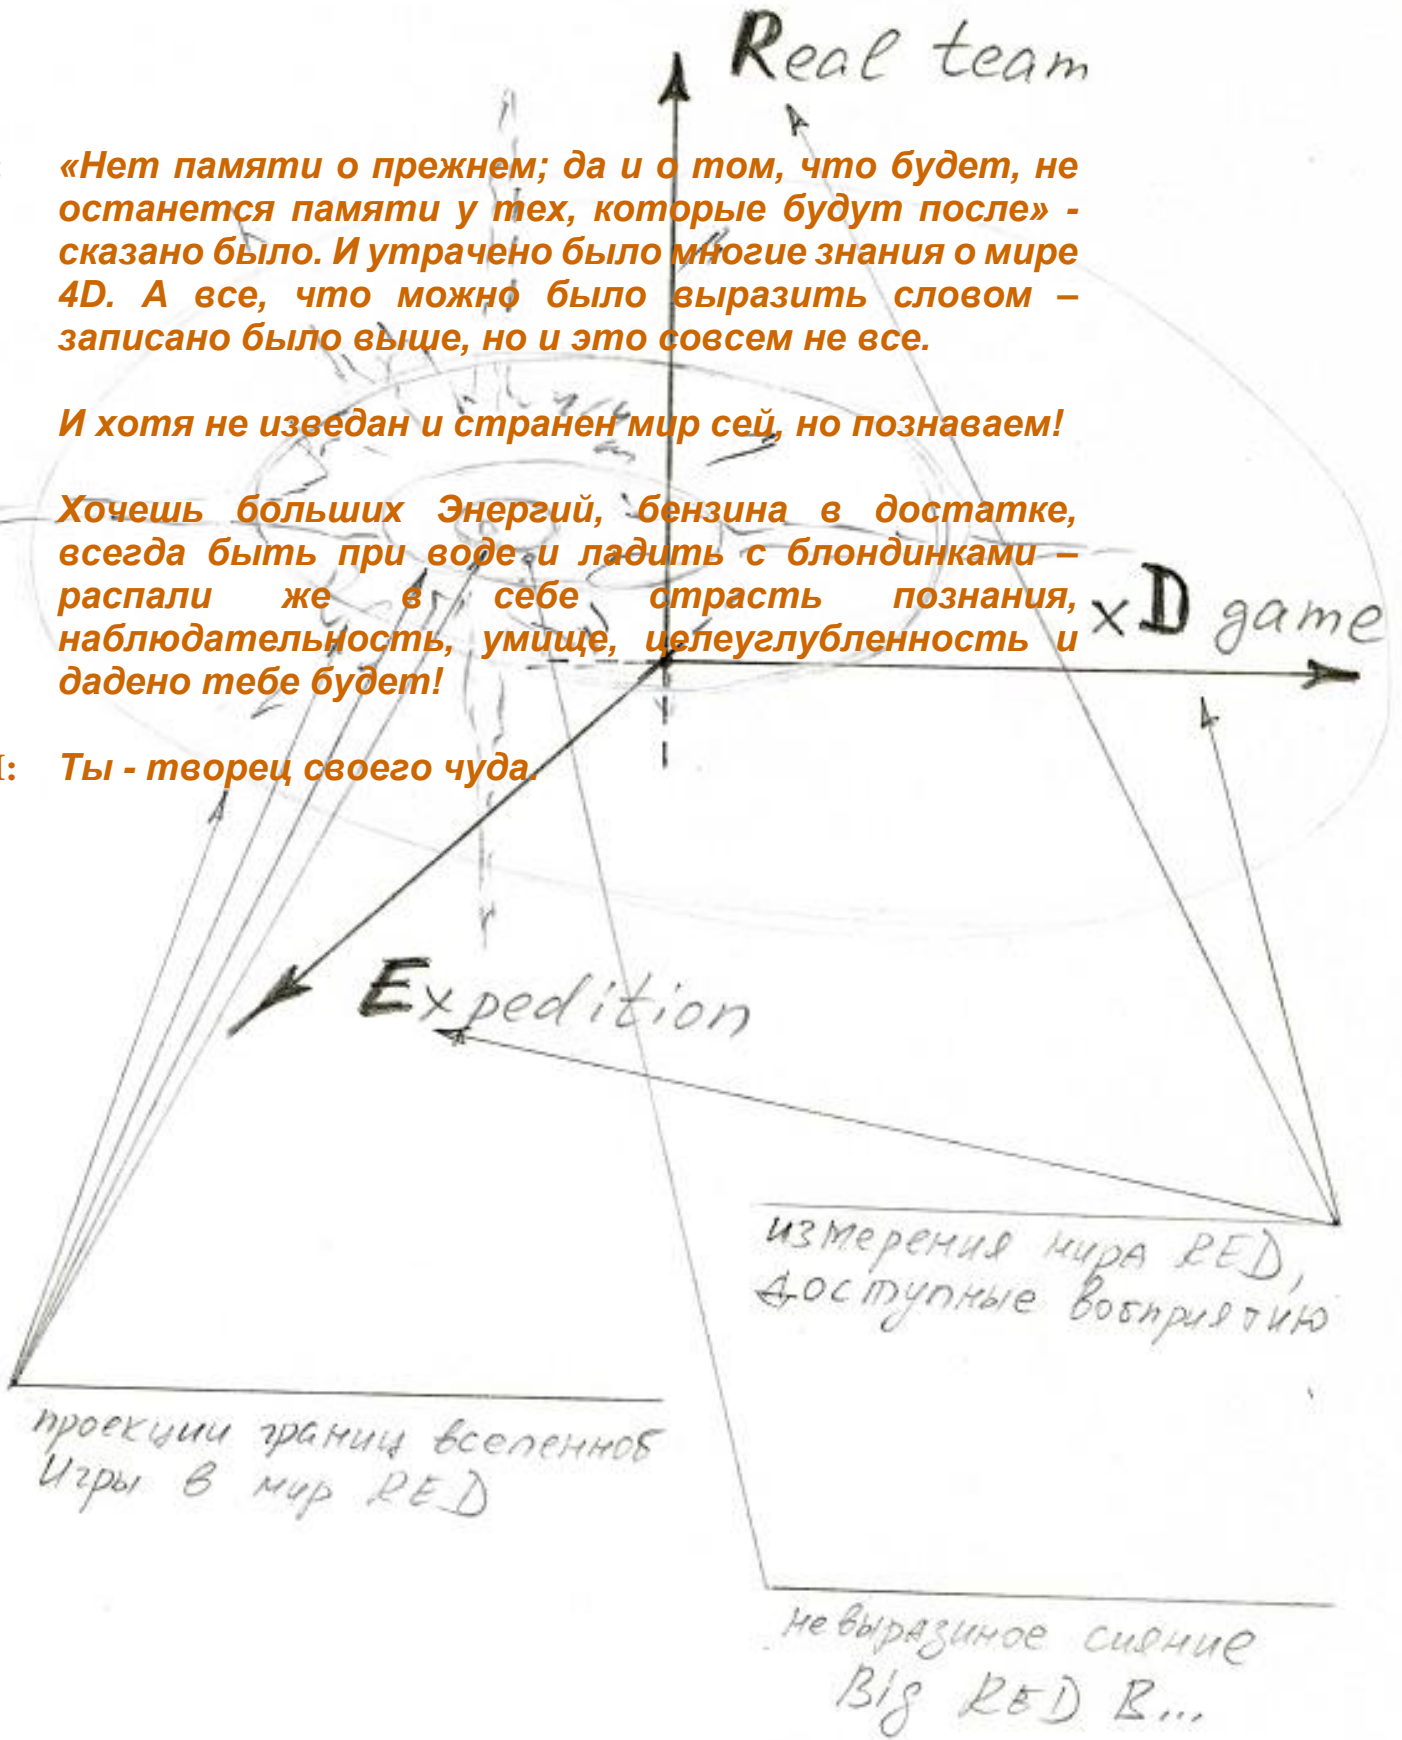 Real team
«Нет памяти о прежнем; да и о том, что будет, не
останется памяти у тех, которые будут после» -
сказано было. И утрачено было многие знания о мире
4D. А все, что можно было выразить словом –
записано было выше, но и это совсем не все.
И хотя не изведан и странен мир сей, но познаваем!
Хочешь больших Энергий, бензина в достатке,
всегда быть при воде и ладить с блондинками –
распали же в себе страсть познания,
наблюдательность, умище, целеуглубленность и
дадено тебе будет!
xD game
Ты - творец своего чуда.
Expedition
измерения мира RED,
доступные восприятию
проекции границ вселенной
Игры в мир RED
невыразимое сияние
Big RED B...